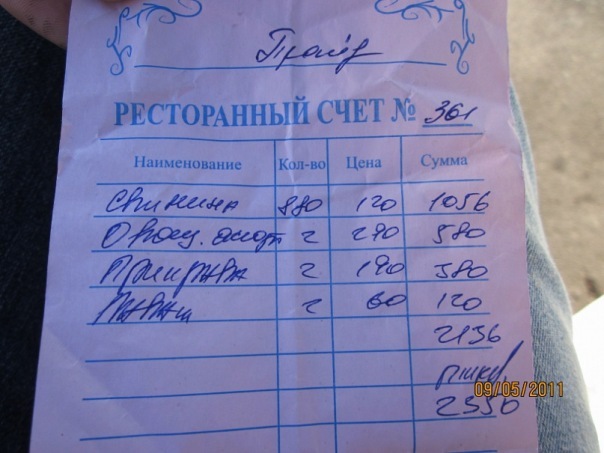 Прайд
РЕСТОРАННЫЙ СЧЕТ № 361
Наименование Кол-во Цена Сумма
Свинина 880 120 1056
Овощ. 2 290 580
Приправа 2 190 380
Лаваш 2 60 120
2136
09/05/2011
2350